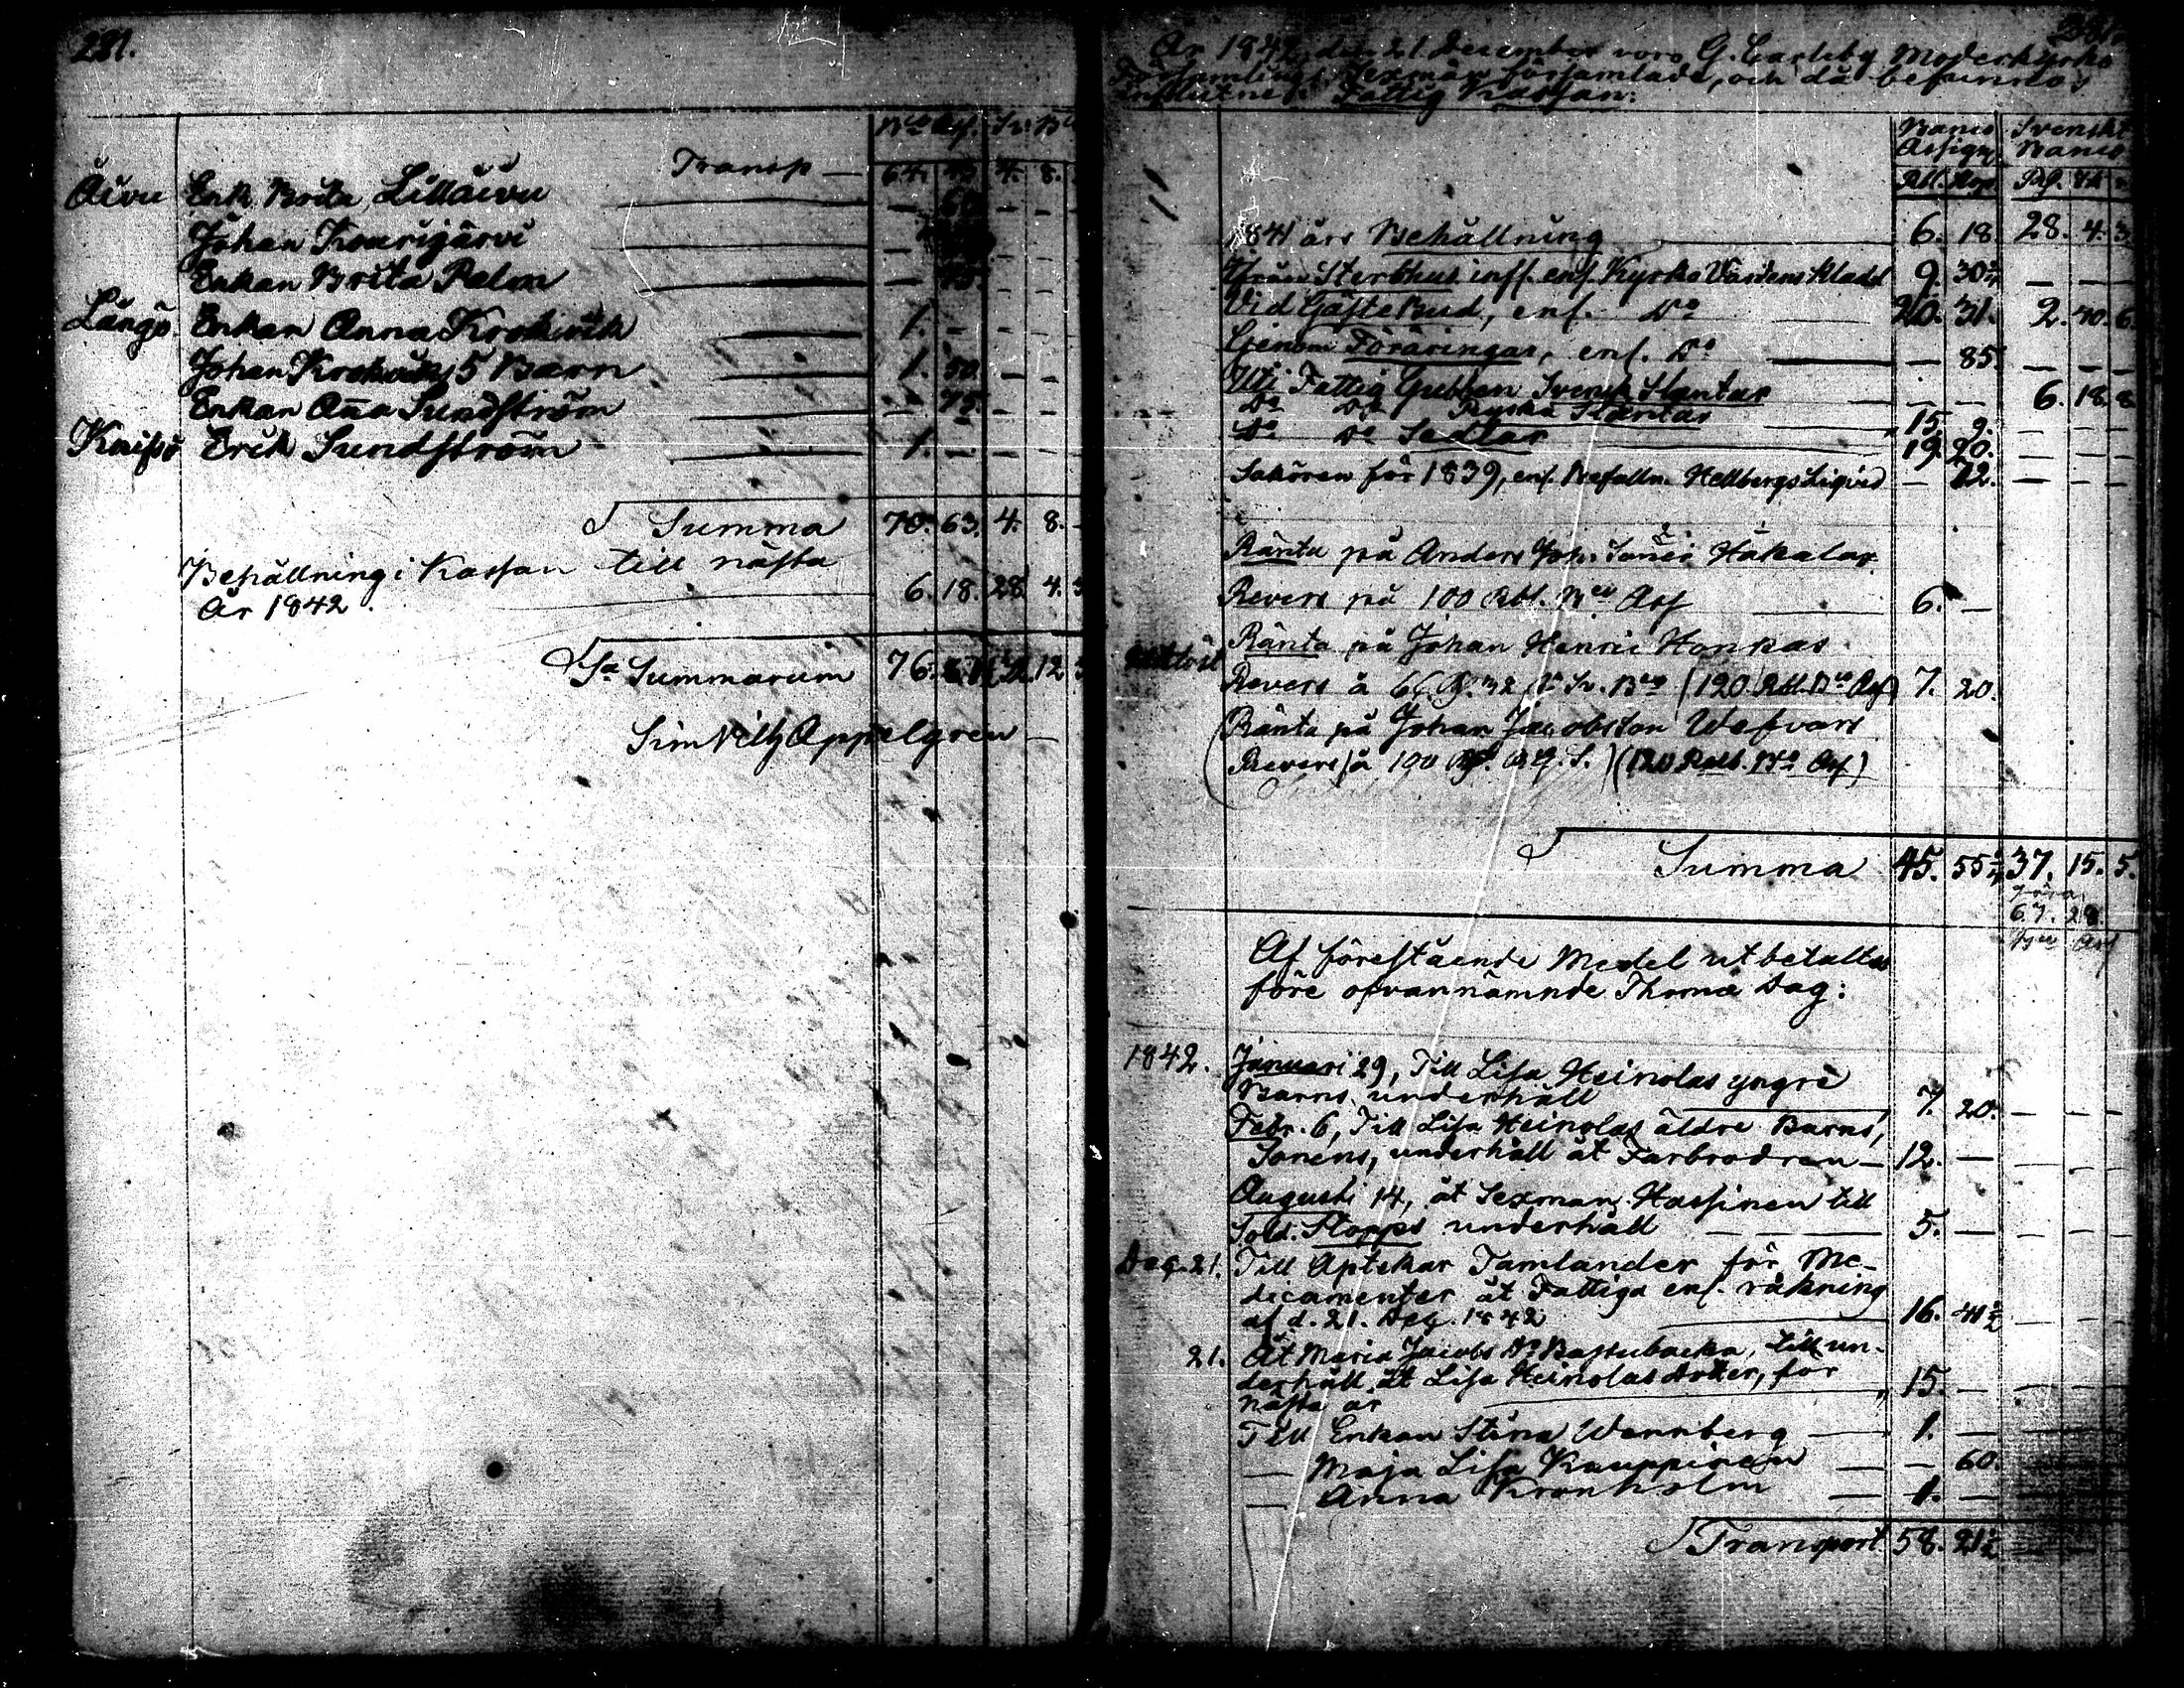 281.
Bco Ass. Sv. Bco
Transp — 64. 4. 8.
Åivu Enk. Brita Lillåivu — 60 — —
Johan Kourijärvi —
Enkan Brita Palm — 75. — —
Långö Enkan Anna Krokvik — 1. — — —
Johan Krokviks 5 Barn — 1. 50. — —
Enkan Aña Sundström — 75. — —
Knifsö Erik Sundström — 1. — — —
Summa 70. 63. 4. 8.
Behållning i Kassan till nästa
År 1842. 6. 18. 28. 4. 3
Sa Summarum 76. 81. 32. 12. 3
Sim Vilh Appelgren
År 1842, den 21 December voro G. Carleby Moderkyrko
Församlings Sexmän församlade, och då befunnos
influtne i Fattig Kassan:
Banco Assign. Svenskt Banco
Rbl. Kop. Rd. sk r
1841 års Behållning — 6. 18. 28. 4. 3.
Ifrån Sterbhus infl. enl. Kyrko Värdens Kladd 9. 30 — —
Vid Gästebud, enl. Do — 20. 31. 2. 40. 6.
Genom Föräringar, enl. Do — — 85. — — —
Uti Fattig Gubben Svensk Slantar — — — 6. 18. 8.
Do Do Ryska Slantar — 15. 9. — — —
Do Do Sedlar — 19. 20. — — —
Sakören för 1839, enl. Befalln. Hellbergs Liqvid — 72. — — —
Ränta på Anders Joh. Håkalax
Revers på 100 Rbl. Bco Ass — 6. —
Ränta på Johan Henric Honkas
Revers à 66 Rd. 32 sk Sv. Bco (120 Rbl. Bco Ass) 7. 20.
Ränta på Johan Jacobsson Wefvars
Revers (à 100 Rd. R.G.S.) (120 Rub. Bco Ass)
Summa 45. 55 37. 15. 5.
göra
67. 28.
Bco Ass
Af förestående Medel utbetaltes
före ofvannämnde Thomæ Dag:
1842. Januari 29, Till Lisa Heinolas yngre
Barns underhåll — 7. 20. — — —
Febr. 6, Till Lisa Heinolas äldre Barns,
Sonens, underhåll åt Farbrodren — 12. — — — —
Augusti 14, åt Sexman Hassinen till
Sold. Stopps underhåll — 5. — — — —
Dec. 21. Till Aptekar Tamlander för Me-
dicamenter åt Fattiga enl. räkning
af d. 21. Dec. 1842 — 16. 41½ — — —
21. Åt Maria Jacobs Dr Bastubacka, till un-
derhåll åt Lisa Heinolas doter, för
nästa år — 15. — — — —
Till Enkan Stina Wennberg — 1. — — —
— Maja Lisa Kauppinen — — 60.
— Anna Kronholm — 1. —
Transport 58. 21½